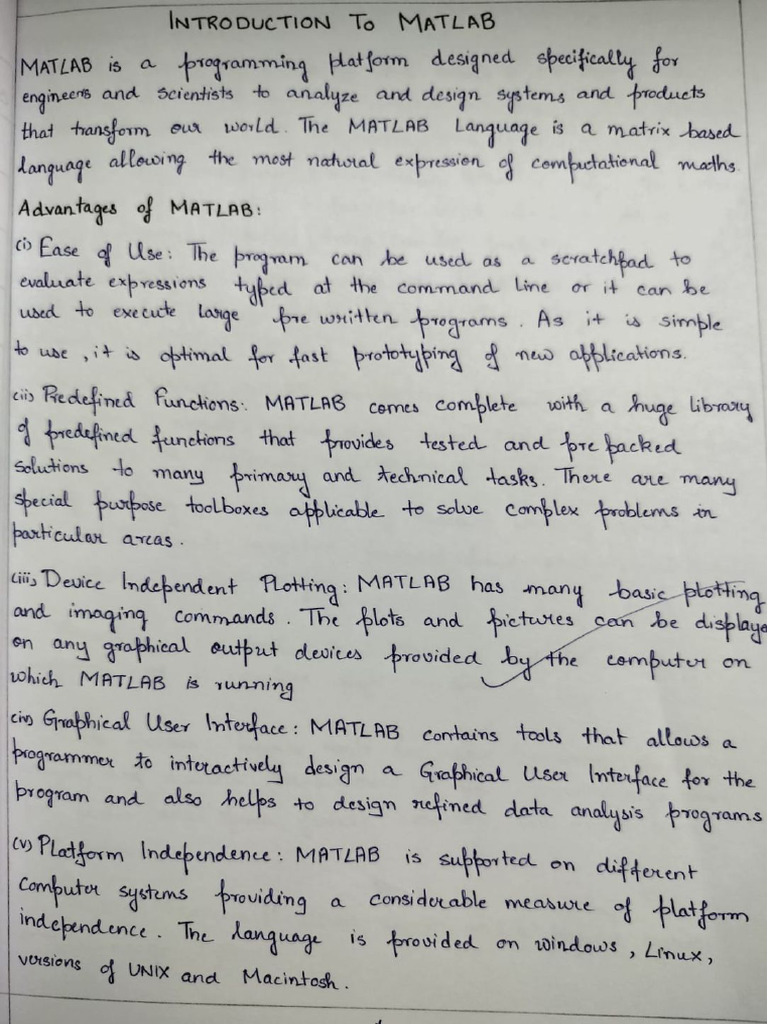 INTRODUCTION TO MATLAB
MATLAB is a programming platform designed specifically for
engineers and scientists to analyze and design systems and products
that transform our world. The MATLAB Language is a matrix based
language allowing the most natural expression of computational maths.
Advantages of MATLAB:
(i) Ease of Use: The program can be used as a scratchpad to
evaluate expressions typed at the command line or it can be
used to execute large pre written programs. As it is simple
to use, it is optimal for fast prototyping of new applications.
(ii) Predefined Functions: MATLAB comes complete with a huge library
of predefined functions that provides tested and pre packed
solutions to many primary and technical tasks. There are many
special purpose toolboxes applicable to solve complex problems in
particular areas.
(iii) Device Independent Plotting: MATLAB has many basic plotting
and imaging commands. The plots and pictures can be displaye
on any graphical output devices provided by the computer on
which MATLAB is running
(iv) Graphical User Interface: MATLAB contains tools that allows a
programmer to interactively design a Graphical User Interface for the
program and also helps to design refined data analysis programs
(v) Platform Independence: MATLAB is supported on different
computer systems providing a considerable measure of platform
independence. The language is provided on windows, Linux,
versions of UNIX and Macintosh.